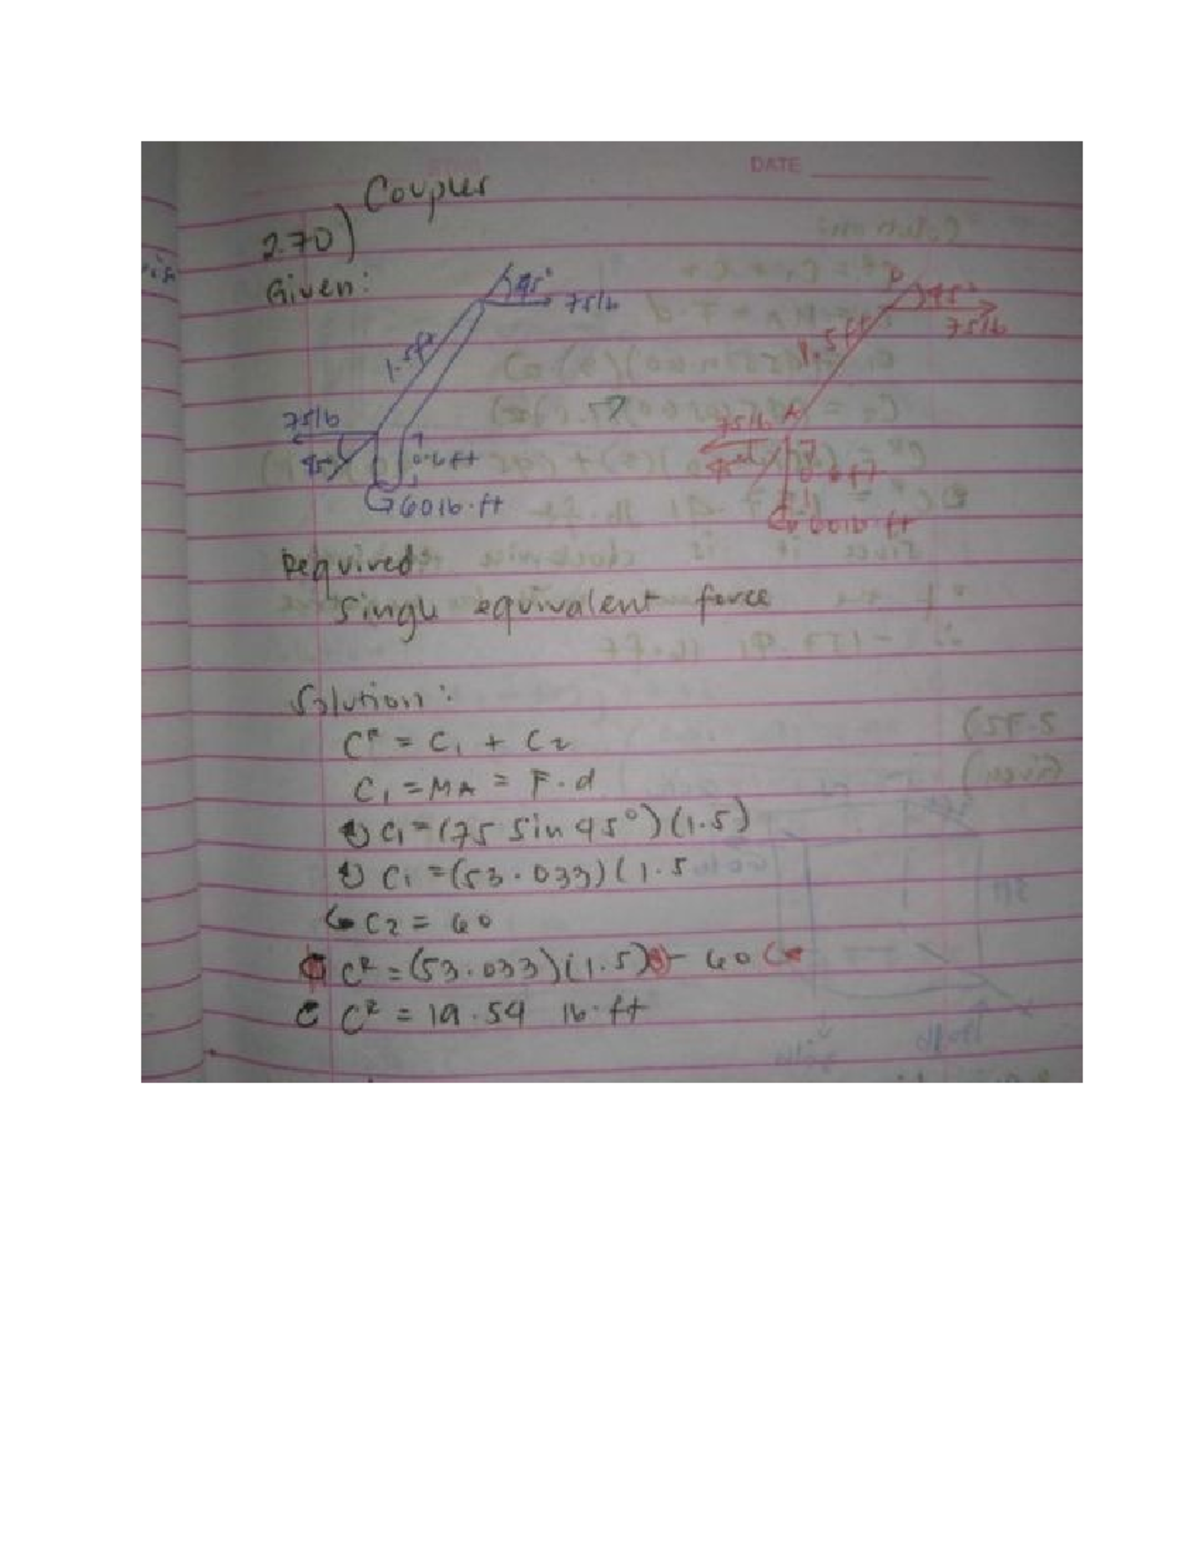 DATE
Couples
2.70)
Given:
45°
75lb
1.5ft
75lb
45°
0.6ft
60lb·ft
B
45°
75lb
1.5ft
A
75lb
45°
60lb·ft
Required:
Single equivalent force
Solution:
Cᴿ = C₁ + C₂
C₁ = MA = F·d
C₁ = (75 sin 45°)(1.5)
C₁ = (53.033)(1.5
C₂ = 60
Cᴿ = (53.033)(1.5) - 60
Cᴿ = 19.54 lb·ft